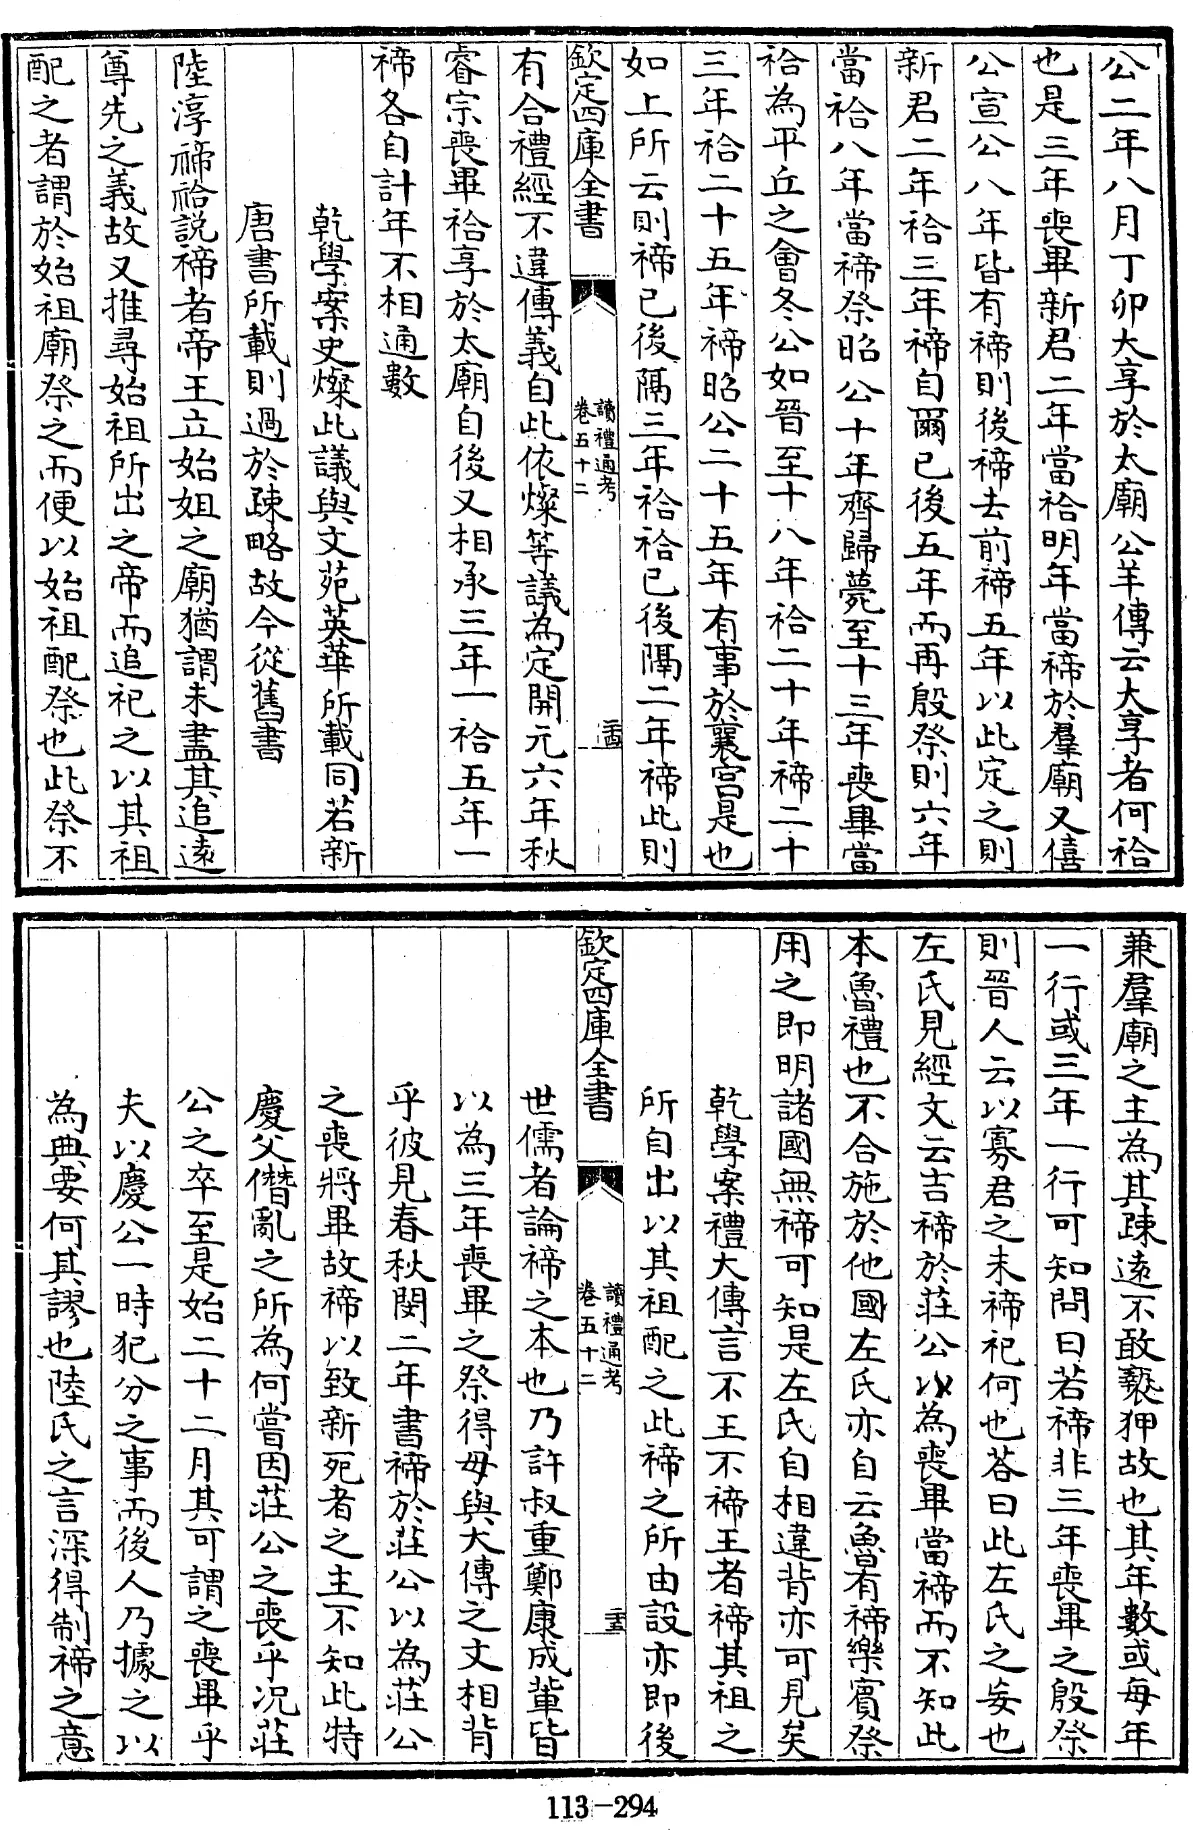 公二年八月丁卯大享於太廟公羊傳云大享者何祫
也是三年喪畢新君二年當祫明年當禘於羣廟又僖
公宣公八年皆有禘則後禘去前禘五年以此定之則
新君二年祫三年禘自爾已後五年而再殷祭則六年
當祫八年當禘祭昭公十年齊歸薨至十三年喪畢當
祫為平丘之會冬公如晉至十八年祫二十年禘二十
三年祫二十五年禘昭公二十五年有事於襄宫是也
如上所云則禘已後隔三年祫祫已後隔二年禘此則
欽定四庫全書
讀禮通考
卷五十二
二十四
有合禮經不違傳義自此依燦等議為定開元六年秋
睿宗喪畢祫享於太廟自後又相承三年一祫五年一
禘各自計年不相通數
乾學案史燦此議與文苑英華所載同若新
唐書所載則過於踈略故今從舊書
陸淳禘祫説禘者帝王立始姐之廟猶謂未盡其追遠
尊先之義故又推尋始祖所出之帝而追祀之以其祖
配之者謂於始祖廟祭之而便以始祖配祭也此祭不
兼羣廟之主為其踈遠不敢䙝狎故也其年數或每年
一行或三年一行可知問曰若禘非三年喪畢之殷祭
則晉人云以寡君之未禘祀何也答曰此左氏之妄也
左氏見經文云吉禘於莊公以為喪畢當禘而不知此
本魯禮也不合施於他國左氏亦自云魯有禘樂賓祭
用之即明諸國無禘可知是左氏自相違背亦可見矣
乾學案禮大傳言不王不禘王者禘其祖之
所自出以其祖配之此禘之所由設亦即後
欽定四庫全書
讀禮通考
卷五十二
二十五
世儒者論禘之本也乃許叔重鄭康成軰皆
以為三年喪畢之祭得毋與大傳之文相背
乎彼見春秋閔二年書禘於莊公以為莊公
之喪將畢故禘以致新死者之主不知此特
慶父僭亂之所為何嘗因莊公之喪乎况莊
公之卒至是始二十二月其可謂之喪畢乎
夫以慶公一時犯分之事而後人乃據之以
為典要何其謬也陸氏之言深得制禘之意
113-294